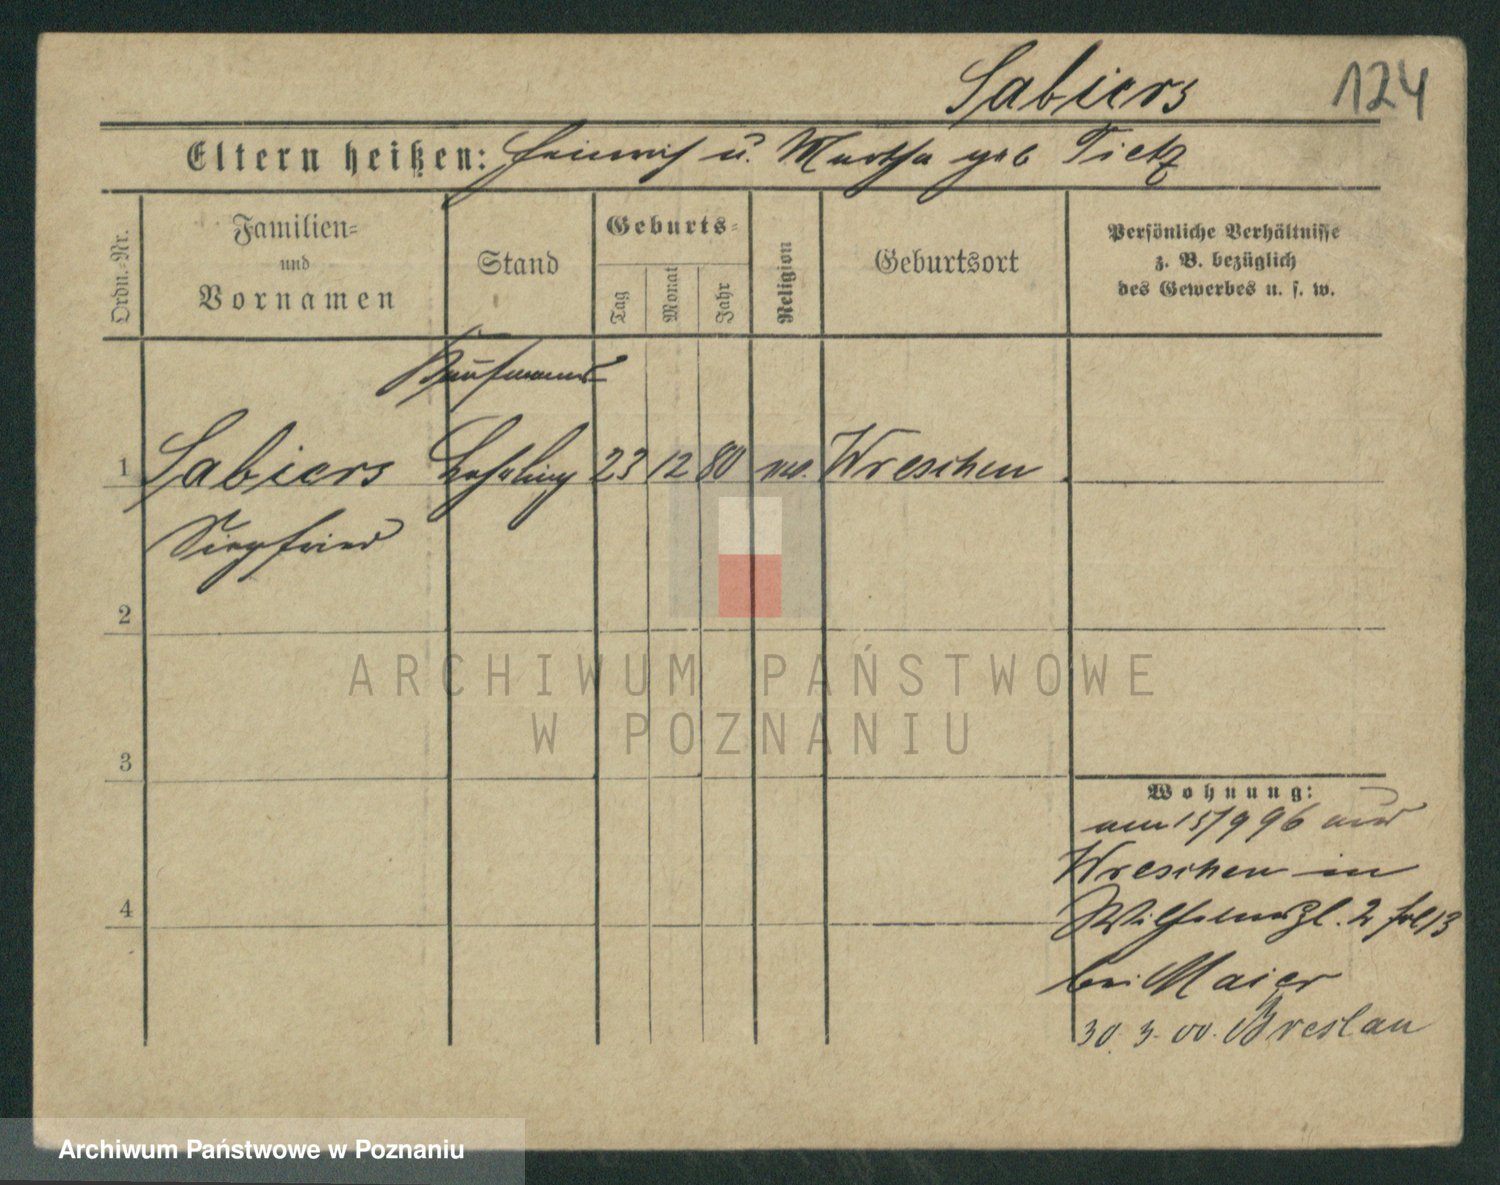 Sabiers 124
Eltern heißen: Heinrich u. Martha geb Tietz
Ordn.-Nr.
Familien-
und
Vornamen
Stand
Geburts-
Tag
Monat
Jahr
Religion
Geburtsort
Persönliche Verhältnisse
z. B. bezüglich
des Gewerbes u. s. w.
Kaufmanns
1 Sabiers Lehrling 23 12 80 mos. Wreschen
Siegfried
2
ARCHIWUM PAŃSTWOWE
W POZNANIU
3
Wohnung:
am 15/9 96 aus
Wreschen in
Wilhelmspl. 2
4
bei Maier
30. 3. 00. Breslau
Archiwum Państwowe w Poznaniu